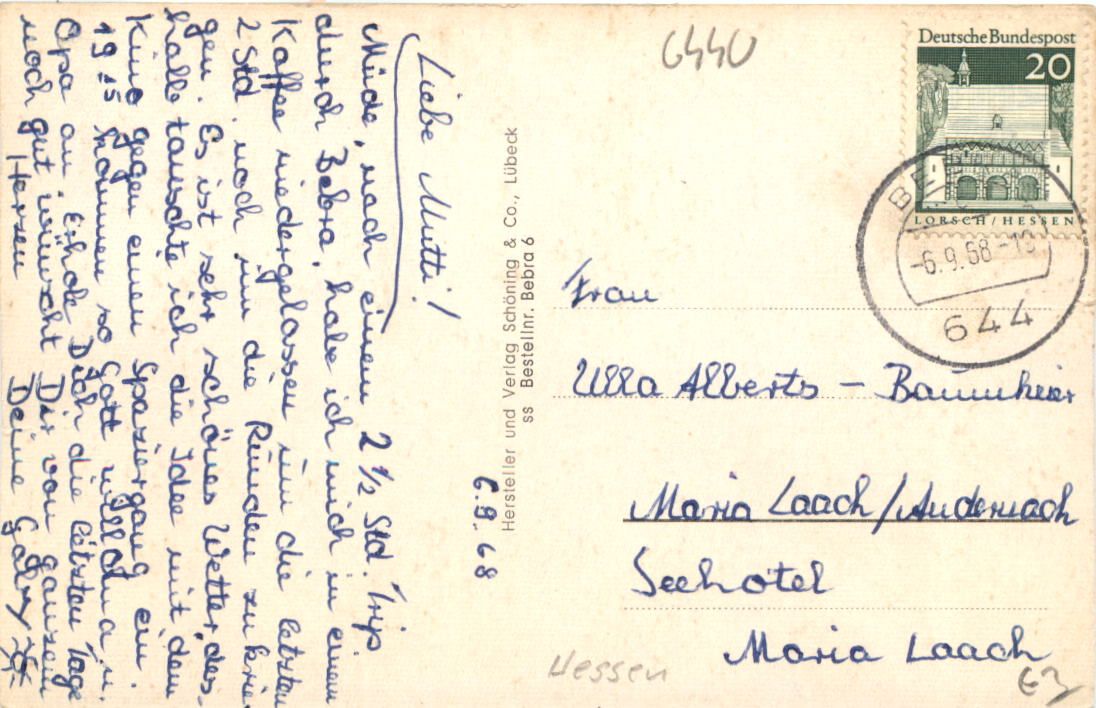 6.9.68
Liebe Mutti!
Müde, nach einem 2 1/2 Std. Trip
durch Bebra, habe ich mich in einem
Kaffee niedergelassen um die letzten
2 Std. noch um die Runden zu krie-
gen. Es ist sehr schönes Wetter, des-
halb tauschte ich die Idee mit dem
Kino gegen einen Spaziergang ein.
19 15 kommen so Gott will Oma u.
Opa an. Erhole Dich die letzten Tage
noch gut wünscht Dir von ganzem
Herzen Deine Gaby
Hersteller und Verlag Schöning & Co., Lübeck
ss Bestellnr. Bebra 6
6440
Deutsche Bundespost
20
LORSCH/HESSEN
-6.9.68
644
Frau
Ulla Alberts – Baumheier
Maria Laach/Andernach
Seehotel
Maria Laach
Hessen